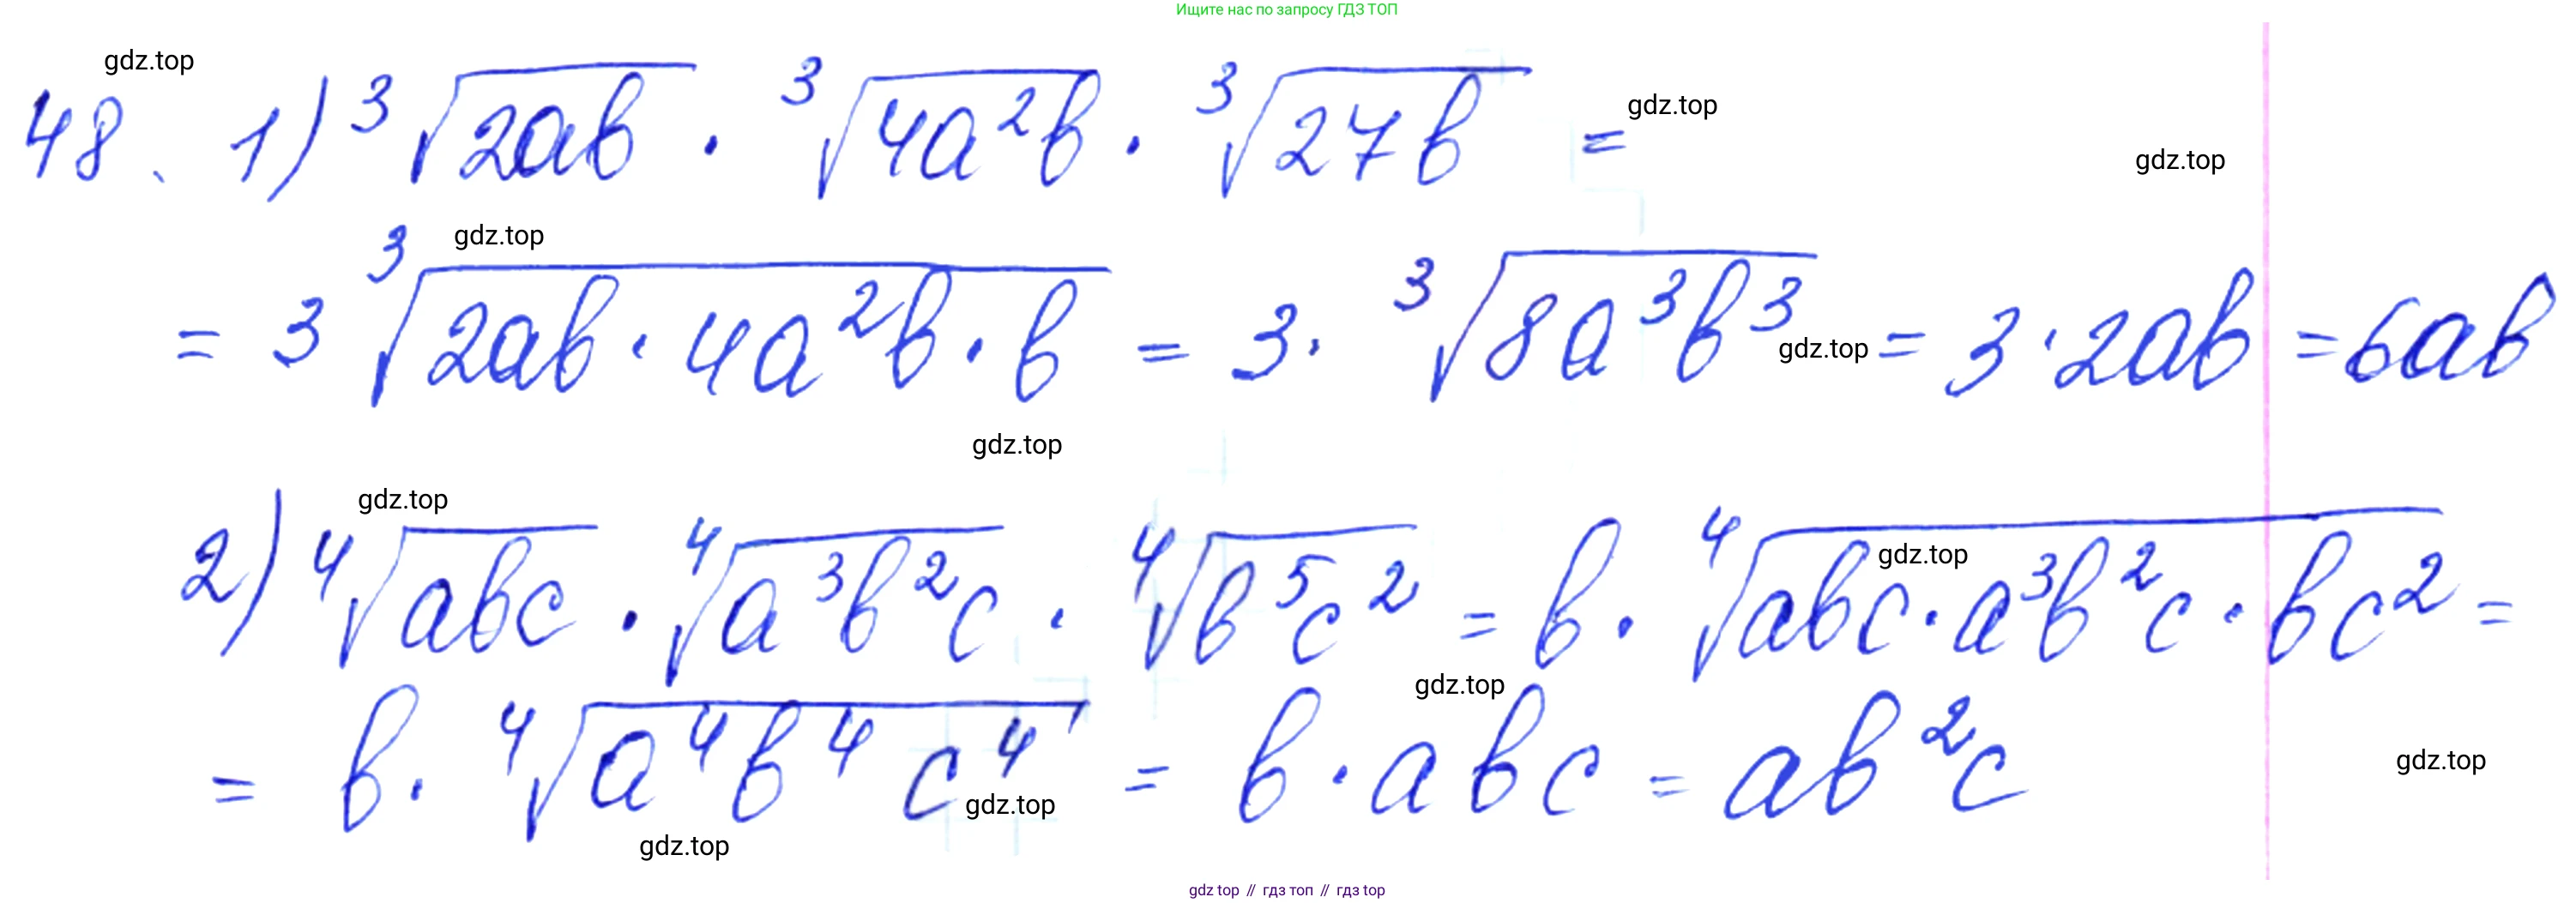 Ищите нас по запросу ГДЗ ТОП
gdz.top
48. 1) ³√(2ab) · ³√(4a²b) · ³√(27b) =
gdz.top
gdz.top
gdz.top
= 3 ³√(2ab · 4a²b · b) = 3 · ³√(8a³b³) = 3 · 2ab = 6ab
gdz.top
gdz.top
gdz.top
2) ⁴√(abc) · ⁴√(a³b²c) · ⁴√(b⁵c²) = b · ⁴√(abc · a³b²c · bc²) =
gdz.top
gdz.top
= b · ⁴√(a⁴b⁴c⁴) = b · abc = ab²c
gdz.top
gdz.top
gdz.top
gdz top // гдз топ // гдз top